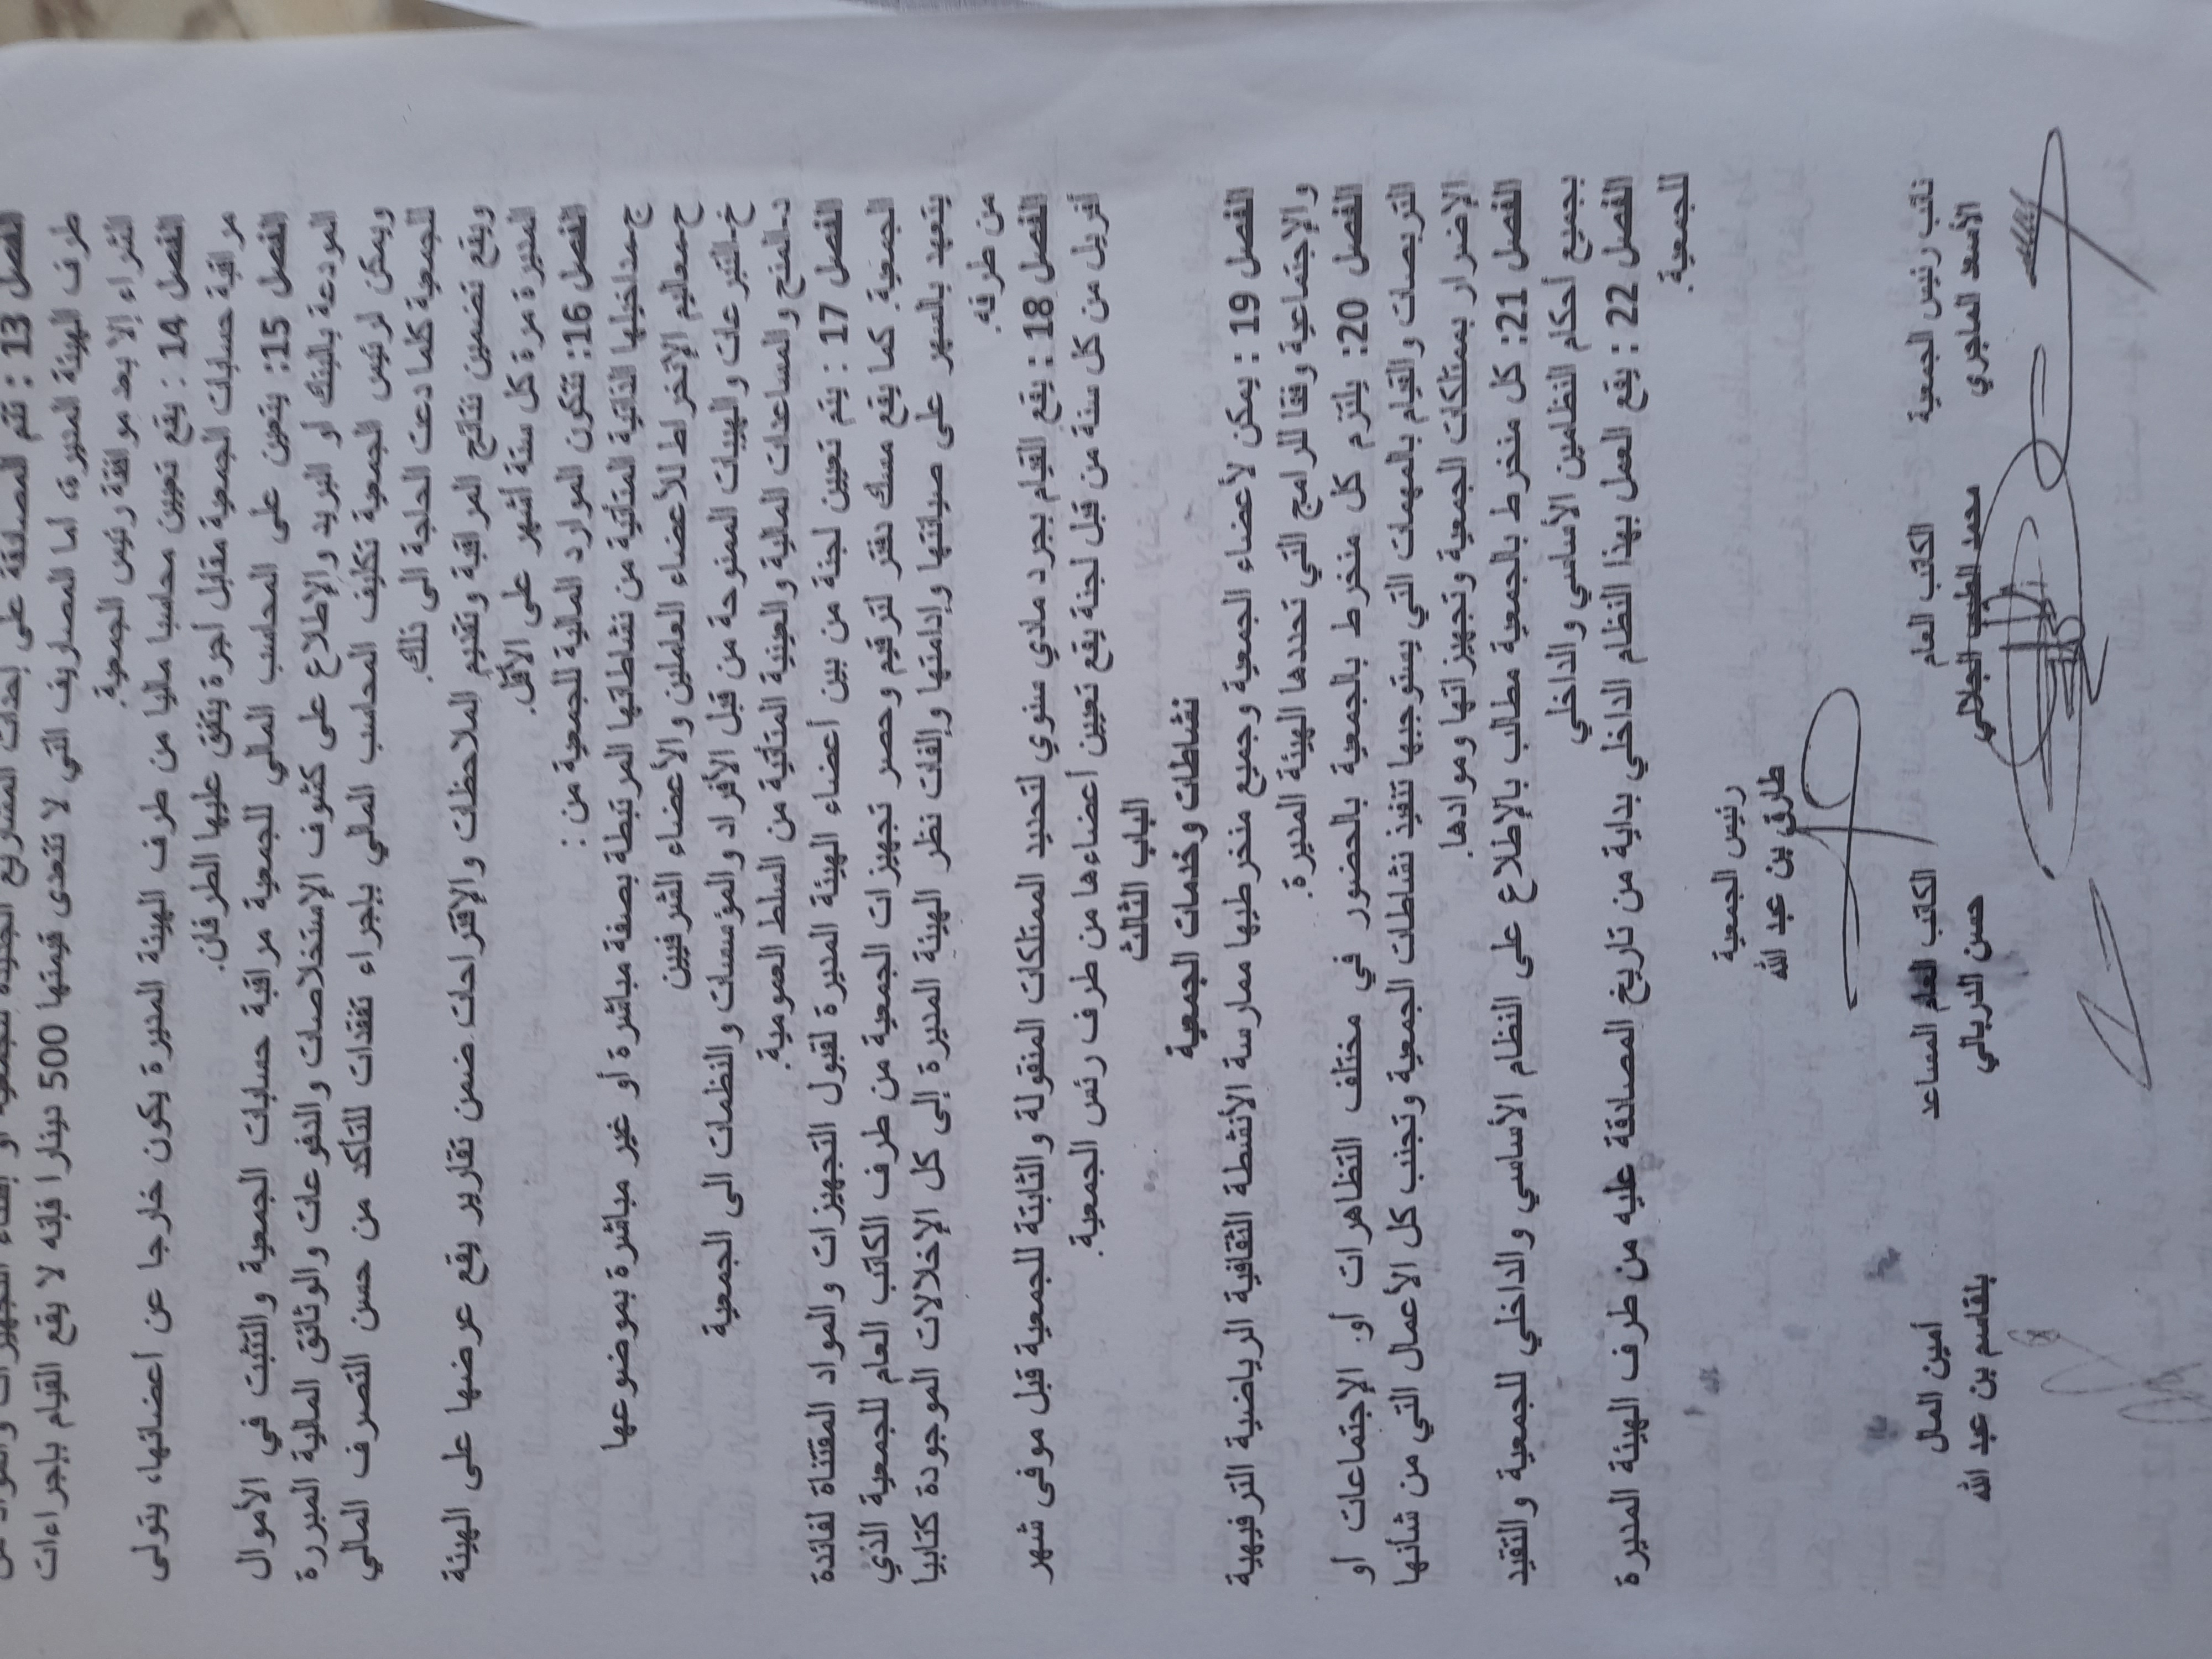 الفصل 13 : تتم المصادقة على إحداث المشاريع الجديدة للجمعية أو إقتناء التجهيزات والمواد من
طرف الهيئة المديرة، اما المصاريف التي لا تتعدى قيمتها 500 دينارا فإنه لا يقع القيام بإجراءات
الشراء إلا بعد موافقة رئيس الجمعية.
الفصل 14 : يقع تعيين محاسبا ماليا من طرف الهيئة المديرة يكون خارجا عن أعضائها، يتولى
مراقبة حسابات الجمعية مقابل اجرة يتفق عليها الطرفان.
الفصل 15: يتعين على المحاسب المالي للجمعية مراقبة حسابات الجمعية والتثبت في الأموال
المودعة بالبنك أو البريد والإطلاع على كشوف الإستخلاصات والدفوعات والوثائق المالية المبررة
ويمكن لرئيس الجمعية تكليف المحاسب المالي بإجراء تفقدات للتأكد من حسن التصرف المالي
للجمعية كلما دعت الحاجة الى ذلك.
ويقع تضمين نتائج المراقبة وتقديم الملاحظات والإقتراحات ضمن تقارير يقع عرضها على الهيئة
المديرة مرة كل ستة أشهر على الأقل.
الفصل 16: تتكون الموارد المالية للجمعية من :
ج-مداخيلها الذاتية المتأتية من نشاطاتها المرتبطة بصفة مباشرة أو غير مباشرة بموضوعها
ح-معاليم الإنخراط للأعضاء العاملين والأعضاء الشرفيين
خ-التبرعات والهيبات الممنوحة من قبل الأفراد والمؤسسات والنظمات الى الجمعية
د-المنح والمساعدات المالية والعينية المتأتية من السلط العمومية.
الفصل 17 : يتم تعيين لجنة من بين أعضاء الهيئة المديرة لقبول التجهيزات والمواد المقتناة لفائدة
الجمعية. كما يقع مسك دفتر لترقيم وحصر تجهيزات الجمعية من طرف الكاتب العام للجمعية الذي
يتعهد بالسهر على صيانتها وإدامتها وإلفات نظر الهيئة المديرة إلى كل الإخلالات الموجودة كتابيا
من طرفه.
الفصل 18 : يقع القيام بجرد مادي سنوي لتحديد الممتلكات المنقولة والثابتة للجمعية قبل موفى شهر
أفريل من كل سنة من قبل لجنة يقع تعيين أعضاءها من طرف رئس الجمعية.
الباب الثالث
نشاطات وخدمات الجمعية
الفصل 19 : يمكن لأعضاء الجمعية وجميع منخرطيها ممارسة الأنشطة الثقافية الرياضية الترفيهية
والإجتماعية وفقا للرامج التي تحددها الهيئة المديرة.
الفصل 20: يلتزم كل منخرط بالجمعية بالحضور في مختلف التظاهرات أو الإجتماعات أو
التربصات والقيام بالمهمات التي يستوجبها تنفيذ نشاطات الجمعية وتجنب كل الأعمال التي من شأنها
الإضرار بممتلكات الجمعية وتجهيزاتها وموادها.
الفصل 21: كل منخرط بالجمعية مطالب بالإطلاع على النظام الأساسي والداخلي للجمعية والتقيد
بجميع أحكام النظامين الأساسي والداخلي
الفصل 22 : يقع العمل بهذا النظام الداخلي بداية من تاريخ المصادقة عليه من طرف الهيئة المديرة
للجمعية.
رئيس الجمعية
طارق بن عبد الله
نائب رئيس الجمعية الكاتب العام الكاتب العام المساعد أمين المال
الأسعد الماجري محمد الطيب الجلالي حسن الدربالي بلقاسم بن عبد الله